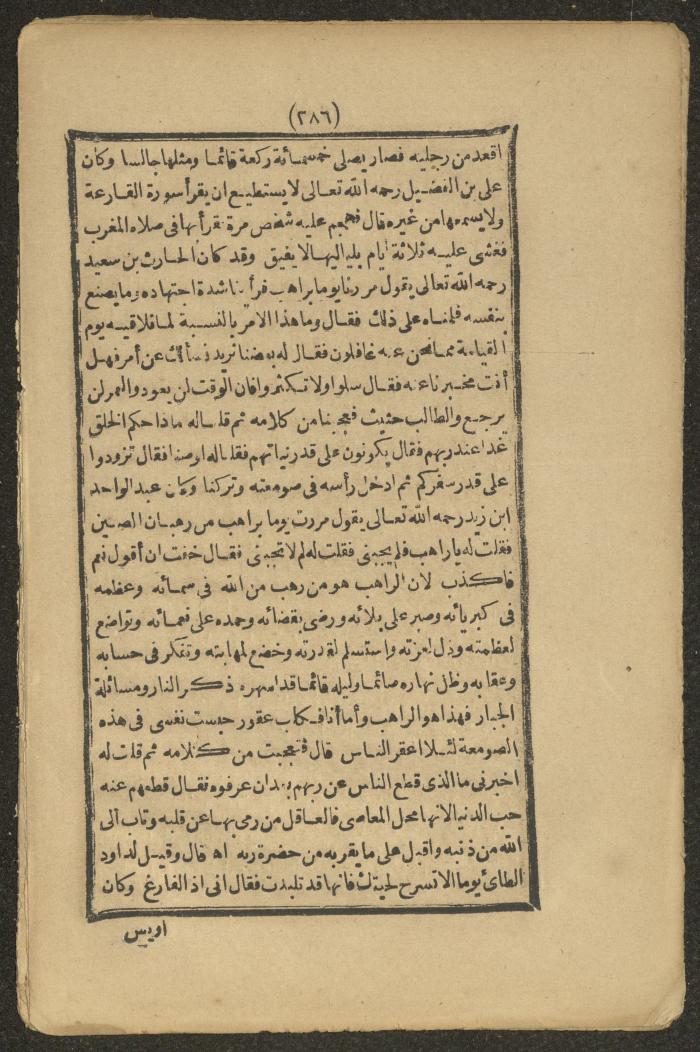 (٢٨٦)
اقعد من رجليه فصار يصلى خمسمائة ركعة قائما ومثلها جالسا وكان
على بن الفضيل رحمه الله تعالى لا يستطيع ان يقرأ سورة القارعة
ولا يسمعها من غيره قال فهجم عليه شخص مرة فقرأ بها فى صلاة المغرب
فغشى عليه ثلاثة أيام بلياليها لا يفيق وقد كان الحارث بن سعيد
رحمه الله تعالى يقول مررنا يوما براهب فرأينا شدة اجتهاده وما يصنع
بنفسه فلمناه على ذلك فقال وما هذا الامر بالنسبة لما نلاقيه يوم
القيامة مما نحن عنه غافلون فقال له بعضنا نريد نسألك عن أمر فهل
أنت مخبرنا عنه فقال سلوا ولا تكثروا فان الوقت لن يعود والعمر لن
يرجع والطالب حثيث فعجبنا من كلامه ثم قلنا له ماذا حكم الخلق
غدا عند ربهم فقال يكونون على قدر نياتهم فقلنا له اوصنا فقال تزودوا
على قدر سفركم ثم ادخل رأسه فى صومعته وتركنا وكان عبد الواحد
ابن زيد رحمه الله تعالى يقول مررت يوما براهب من رهبان الصين
فقلت له يا راهب فلم يجبنى فقلت له لم لا تجبنى فقال خفت ان أقول نعم
فاكذب لان الراهب هو من رهب من الله فى سمائه وعظمه
فى كبريائه وصبر على بلائه ورضى بقضائه وحمده على نعمائه وتواضع
لعظمته وذل لعزته واستسلم لقدرته وخضع لمهابته وتفكر فى حسابه
وعقابه وظل نهاره صائما وليله قائما قد اسهره ذكر النار ومسائلة
الجبار فهذا هو الراهب وأما أنا فكلب عقور حبست نفسى فى هذه
الصومعة لئلا اعقر الناس قال فتعجبت من كلامه ثم قلت له
اخبرنى ما الذى قطع الناس عن ربهم بعد ان عرفوه فقال قطعهم عنه
حب الدنيا لانها محل المعاصى فالعاقل من رمى بها عن قلبه وتاب الى
الله من ذنبه واقبل على ما يقربه من حضرة ربه اه قال وقيل لداود
الطائى يوما الا تسرح لحيتك فانها قد تلبدت فقال انى اذ الفارغ وكان
اويس